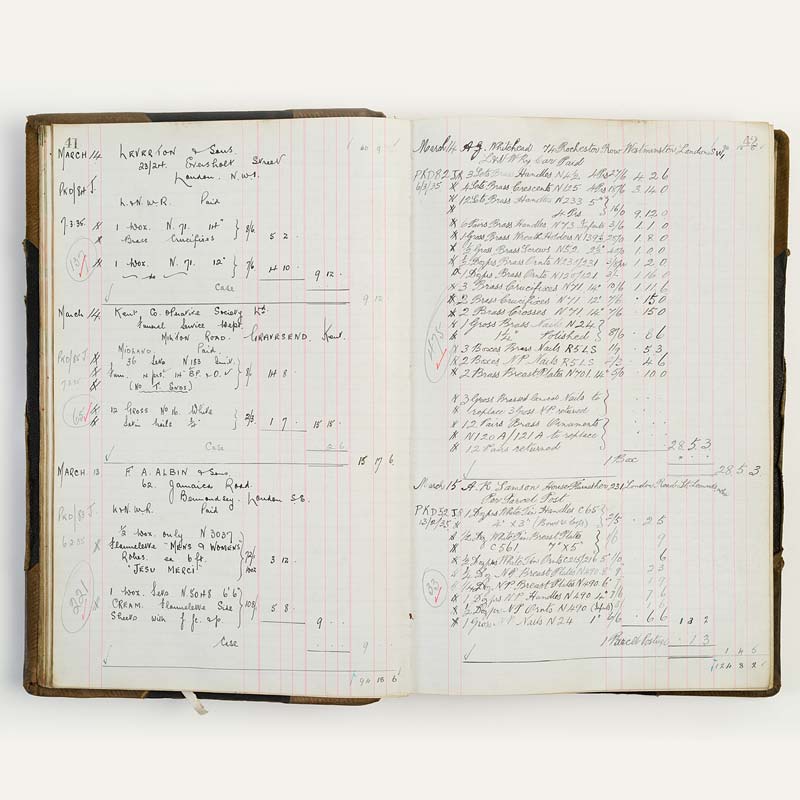 41
60 9
MARCH 14 LEVERTON & Sons.
23/24. Eversholt Street
London. N.W.1.
PKD/84 J.
L.& N.W.R. Paid
7.3.35 1 Doz. N.71. 14" } 8/6
Brass Crucifixes 5 2 .
1 Doz. N.71. 12" } 7/6 4 10 . 9 12 .
Case
9 12
March 14. Kent Co operative Society Ltd.
Funeral Service Dept.
MILTON ROAD. GRAVESEND. Kent.
MIDLAND. Paid.
36 Sets N 183
14" E.P. 8/- 14 8 .
(NO T. Ends)
65
12 GROSS No 16. White
Satin Nails 1/2" } 2/3 1 7 . 15 15 .
Case 2 6
15 17 6
MARCH 13 F. A. ALBIN & Sons.
62. Jamaica Road.
Bermondsey. London S.E.
L.& N.W.R. Paid
PKD/83 J.
6.2.35 1/2 Doz. only N 3037
Flannelette MENS & WOMENS
Robes. ea 6 ft. 72/-
"JESU MERCI" 3 12
221
1 Doz. Sets. N 5048 6'6"
CREAM. Flannelette Side 108/- 5 8
Sheets with 9 . .
Case
9
94 18 6
42
March 14 A. J. Whitehead 74 Rochester Row Westminster London S.W.1
L&NW Ry Car Paid
PKD 82 J 3 Sets Brass Handles N 4 1/2 4 Prs 27/6 4 2 6
6/3/35 4 Sets Brass Crescents N 125 4 Prs 18/6 3 14 0
12 Sets Brass Handles N 233 5" }
4 Prs } 16/0 9.12.0
6 Pairs Brass Handles N 73 3/6 1 1 0
1 Gross Brass Wreath Holders N 139 1/2 28/0 1 8 0
1/2 Gross Brass Screws N 52 1 0 0
1/2 Dz prs Brass Ornts N 231/231 1 2 0
1 Dz prs Brass Ornts N 120/121 1 16 0
3 Brass Crucifixes N 71 14" 10/6 1 11 6
2 Brass Crucifixes N 71 12" 7/6 . 15 0
2 Brass Crosses N 71 12" 7/6 . 15 0
1 Gross Brass Nails N 24 }
1 1/4" Polished } 8/6 . 8 6
475
3 Boxes Brass Nails R 5 L S 1/9 . 5 3
2 Boxes N.P. Nails R 5 L S 2/3 . 4 6
2 Brass Breast Plates N 701 14" 5/0 . 10 0
3 Gross Brassed General Nails to }
replace 3 Gross N P returned
12 Pairs Brass Ornaments }
N 120 A/121 A to replace
12 Pairs returned 28 5 3
1 Box
28 5 3
March 15 A. K. Samson House Furnisher, 231 London Road St. Leonards
Per Parcel Post
PKD 52 J 1 Dz prs White Tin Handles C 65 }
13/2/35 4" x 3" } 2/5 . 2 5
1/2 Dz White Tin Breast Plates
C 561 7" x 5" } 1/6 9
1/2 Dz prs White Tin Ornts C 215/216 5" 1/0 6
1/4 Dz N.P. Breast Plates N 490 8" 2 3
1/4 Dz N.P. Breast Plates N 490 6" 1 9
33
1/2 Dz prs N.P. Handles N 490 4" 7 6
1/2 Dz pr N P Ornts N 490
1 Gross N P Nails N 24 1" 6/6 . 6 6 1 3 2
1 Parcel Postage . 1 3
1 4 5
124 8 2